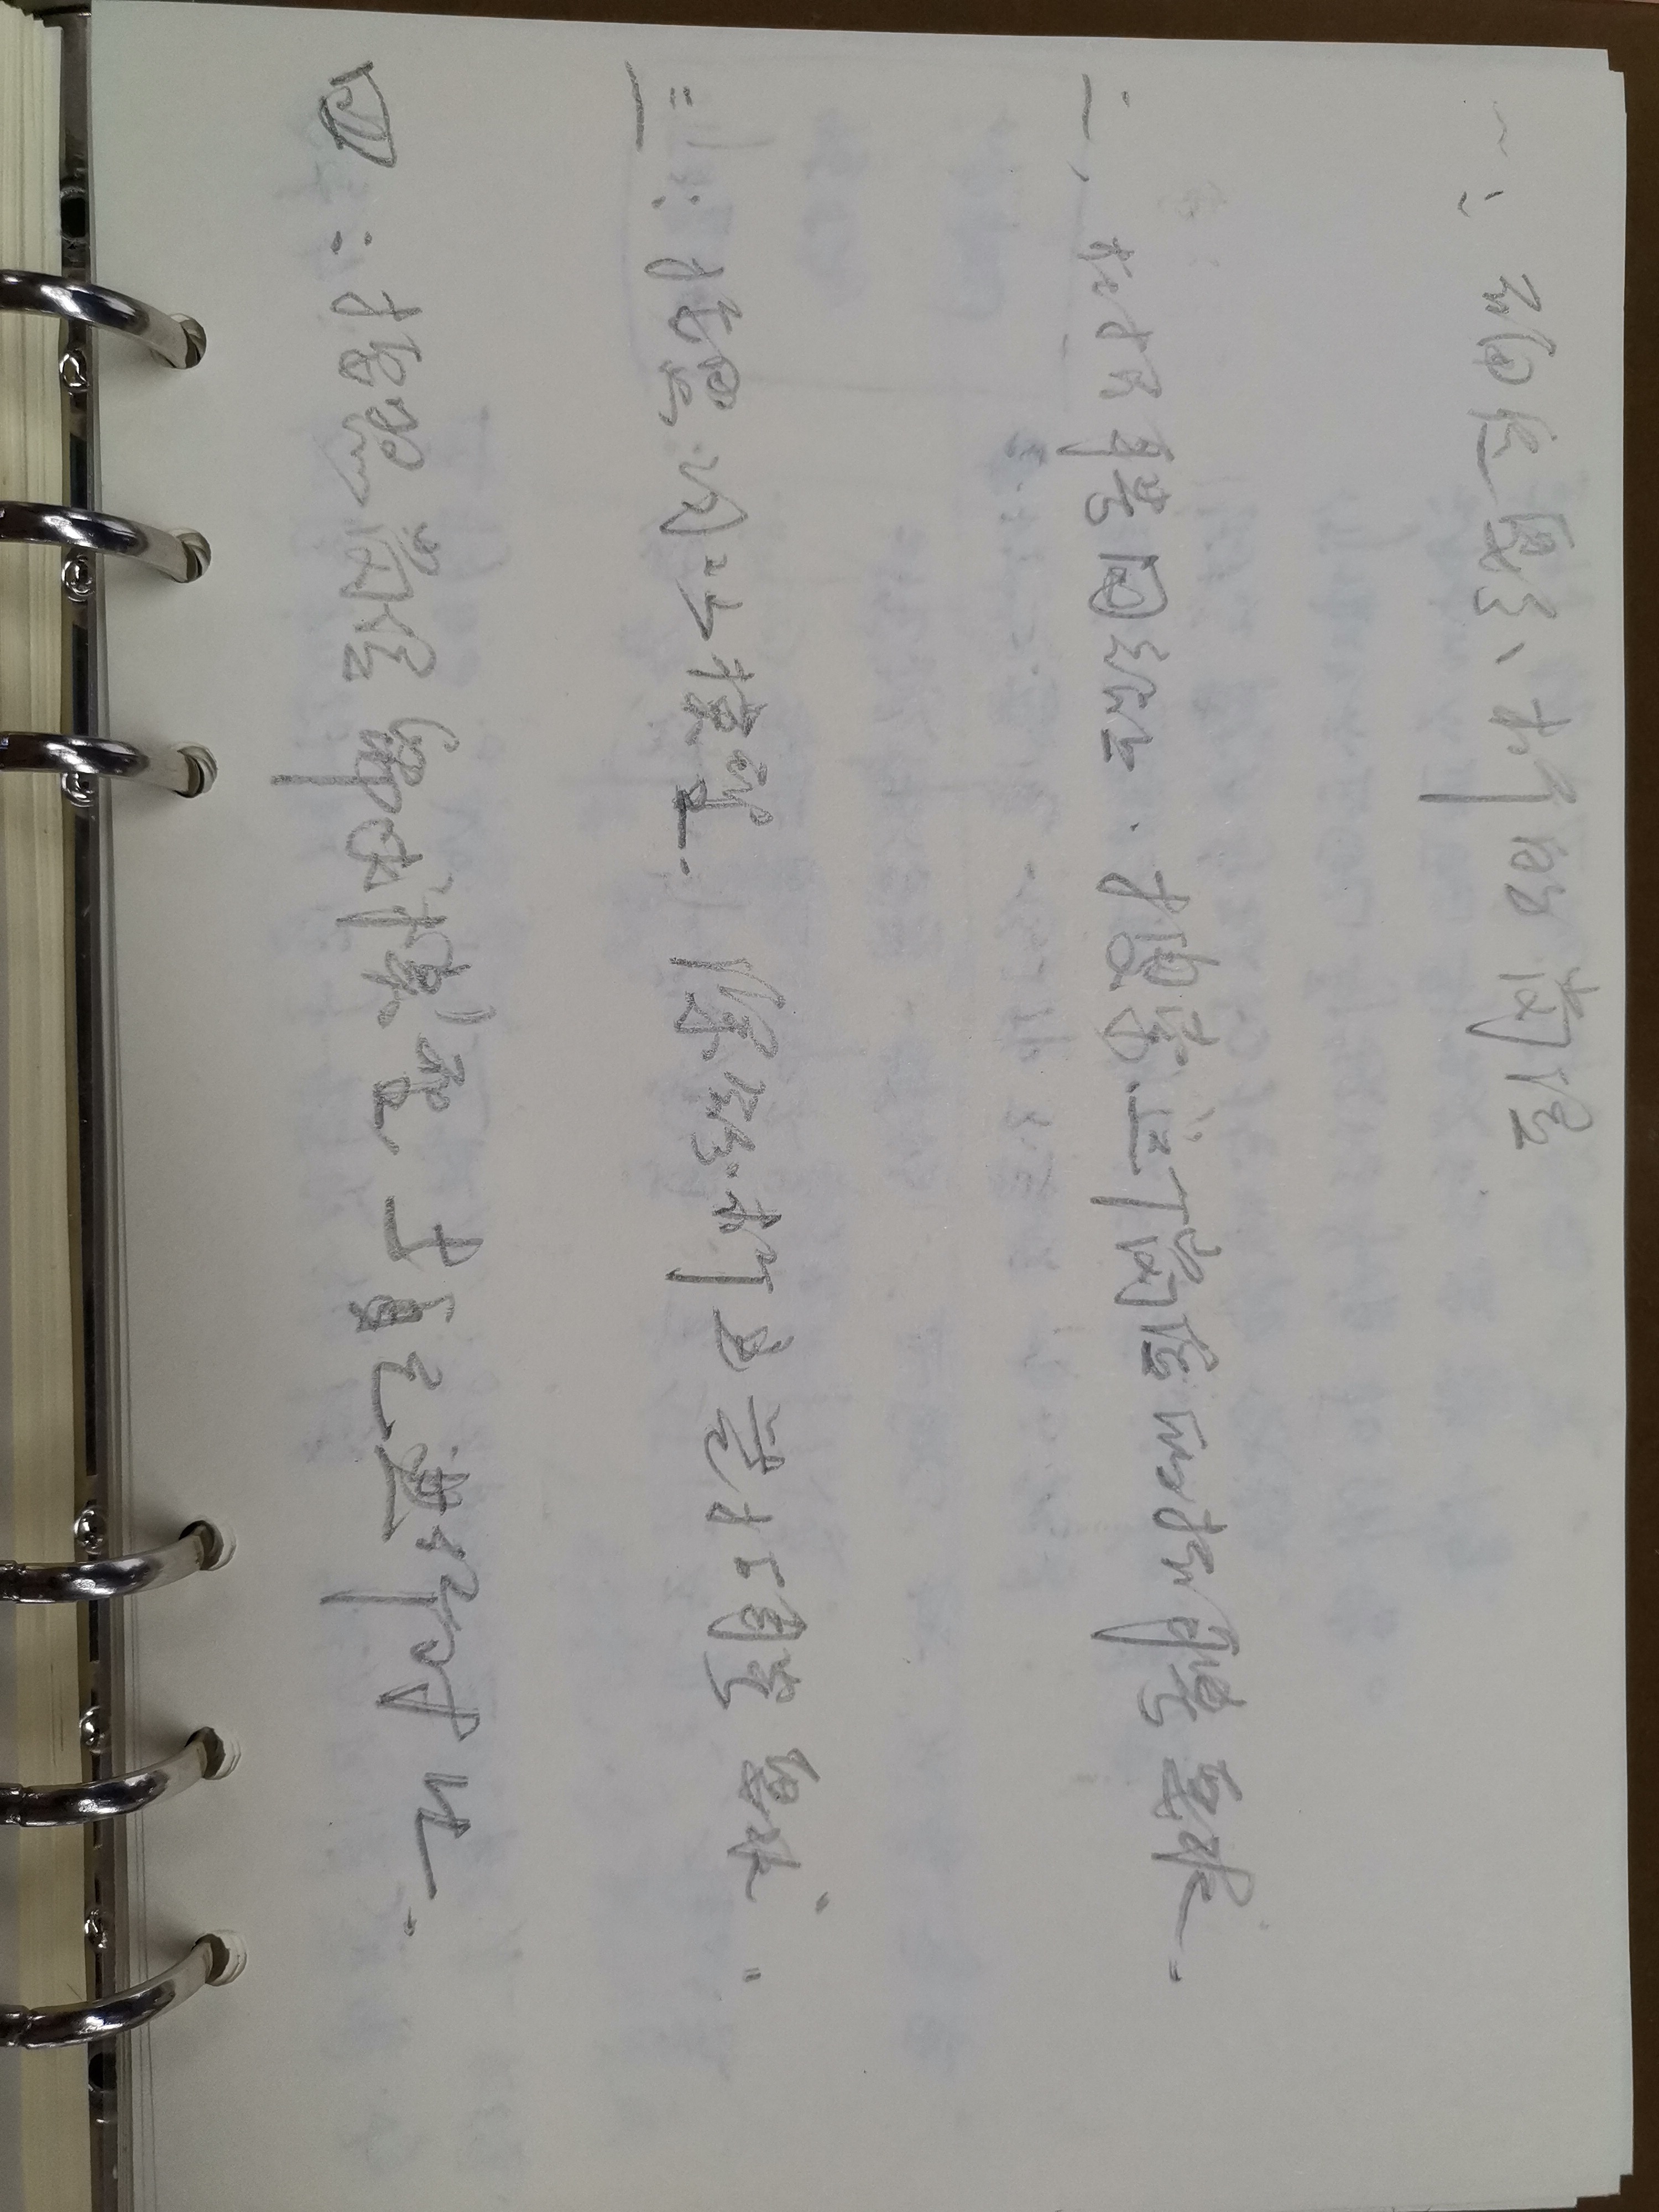 一：确定要分析的岗位
二，在招聘网站上．搜索这个岗位的招聘要求．
三：按照冰山模型．综合分析这些招聘要求．
四：按照岗位需求模型 与自己进行对比．